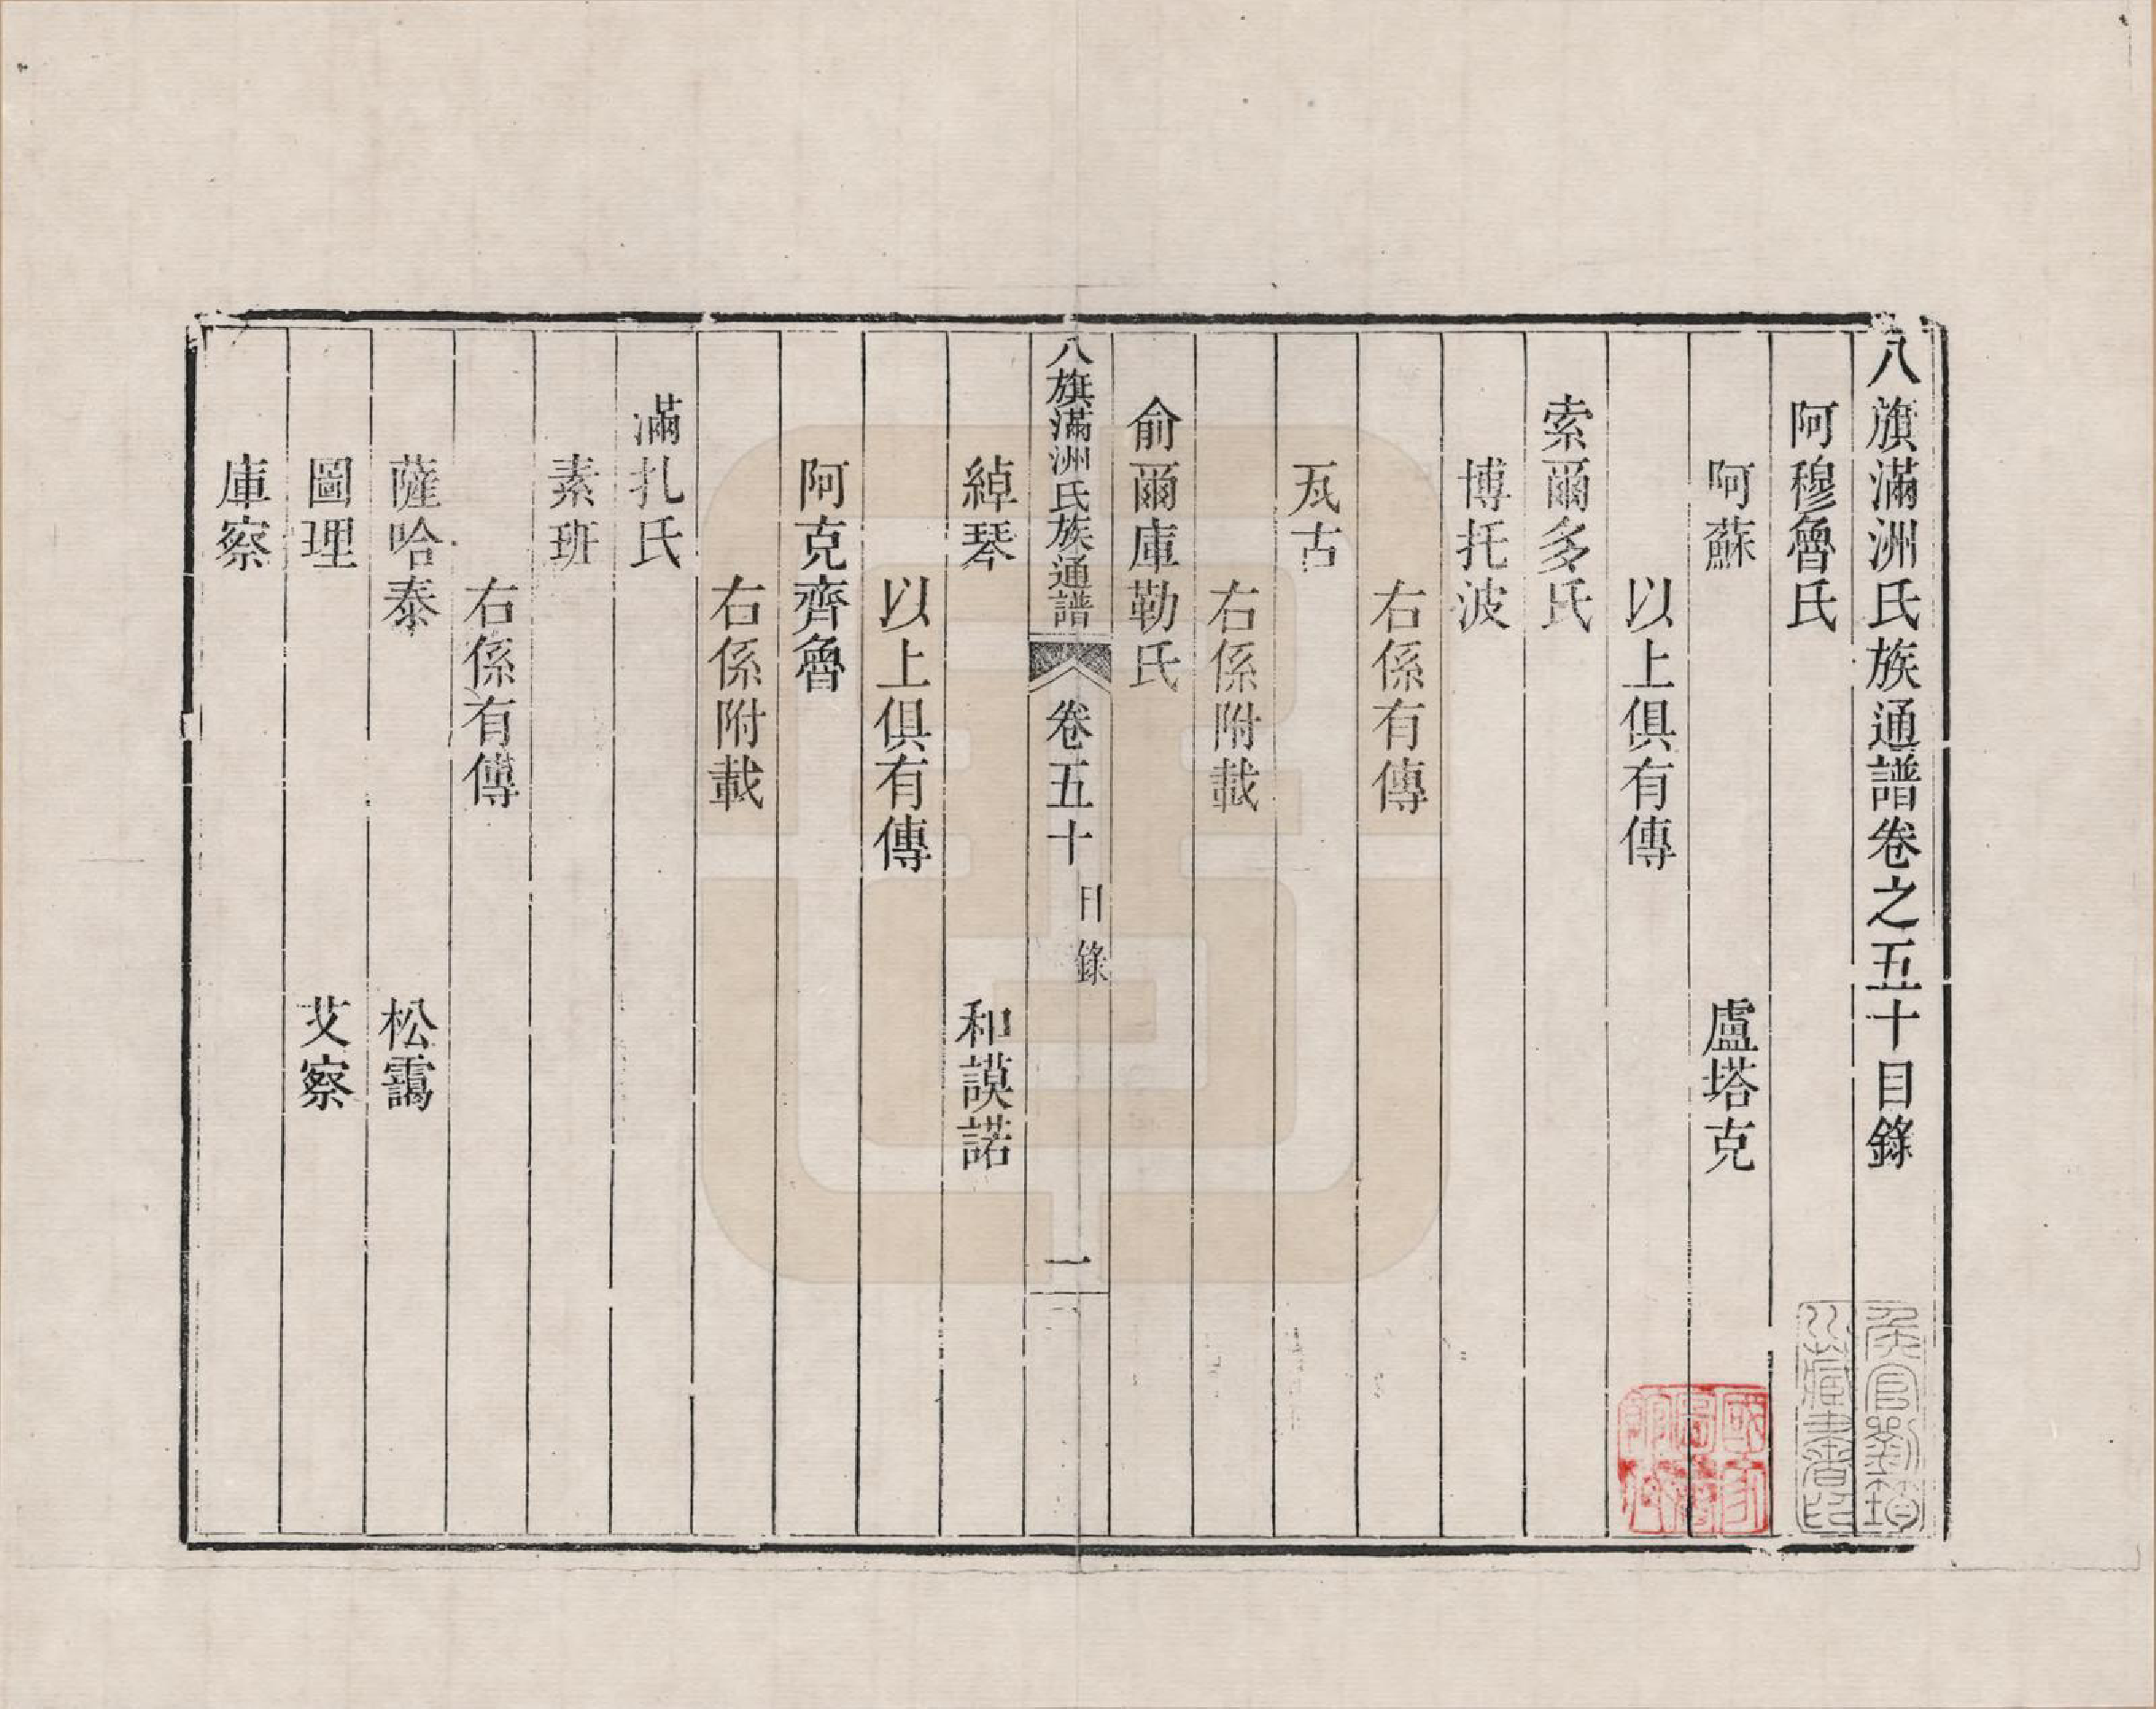 八旗滿洲氏族通譜卷之五十目錄
阿穆魯氏
阿蘇　盧塔克
以上俱有傳
索爾多氏
博托波
右係有傳
瓦古
右係附載
俞爾庫勒氏
八旗滿洲氏族通譜　卷五十　目錄　一
綽琴　和謨諾
以上俱有傳
阿克齊魯
右係附載
滿扎氏
素班
右係有傳
薩哈泰　松靄
圖理　艾察
庫察
侯官劉筠
川藏書印